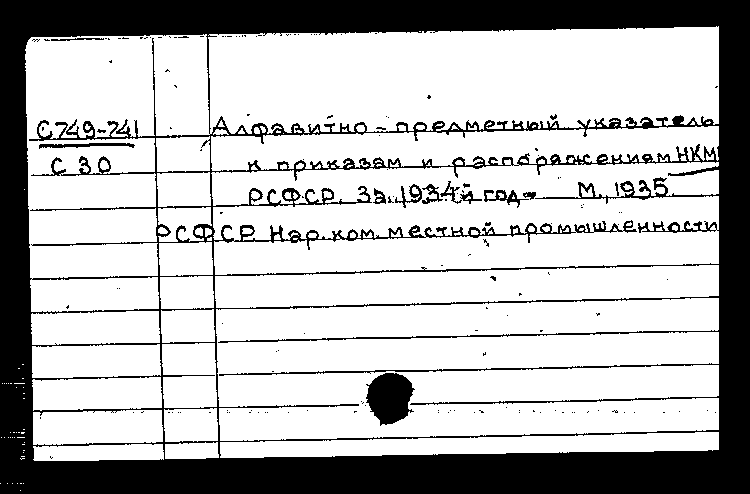 С749-741 Алфавитно-предметный указатель
С 30 к приказам и распоряжениям НКМ
РСФСР. За 1934й год- М., 1935.
РСФСР. Нар. ком. местной промышленности